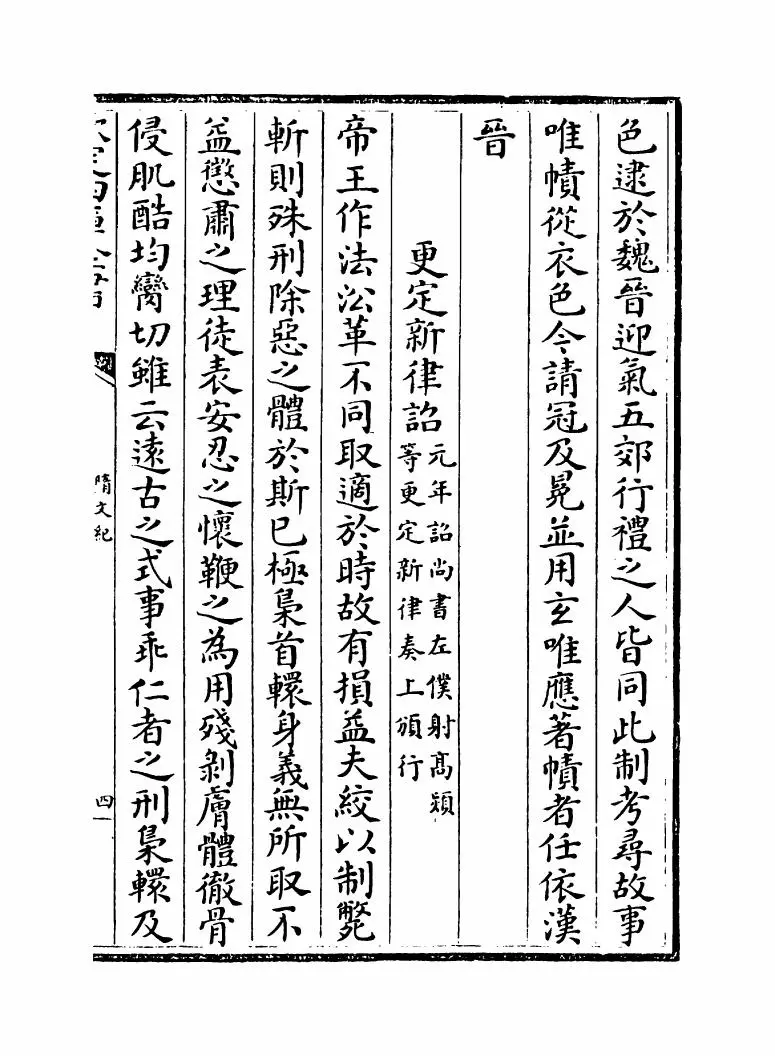 色逮於魏晉迎氣五郊行禮之人皆同此制考尋故事
唯幘從衣色今請冠及冕並用玄唯應著幘者任依漢
晉
更定新律詔元年詔尚書左僕射髙熲
等更定新律奏上頒行
帝王作法㳂革不同取適於時故有損益夫絞以制斃
斬則殊刑除惡之體於斯已極梟首轘身義無所取不
益懲肅之理徒表安忍之懷鞭之為用殘剝膚體徹骨
侵肌酷均臠切雖云逺古之式事乖仁者之刑梟轘及
隋文紀
四